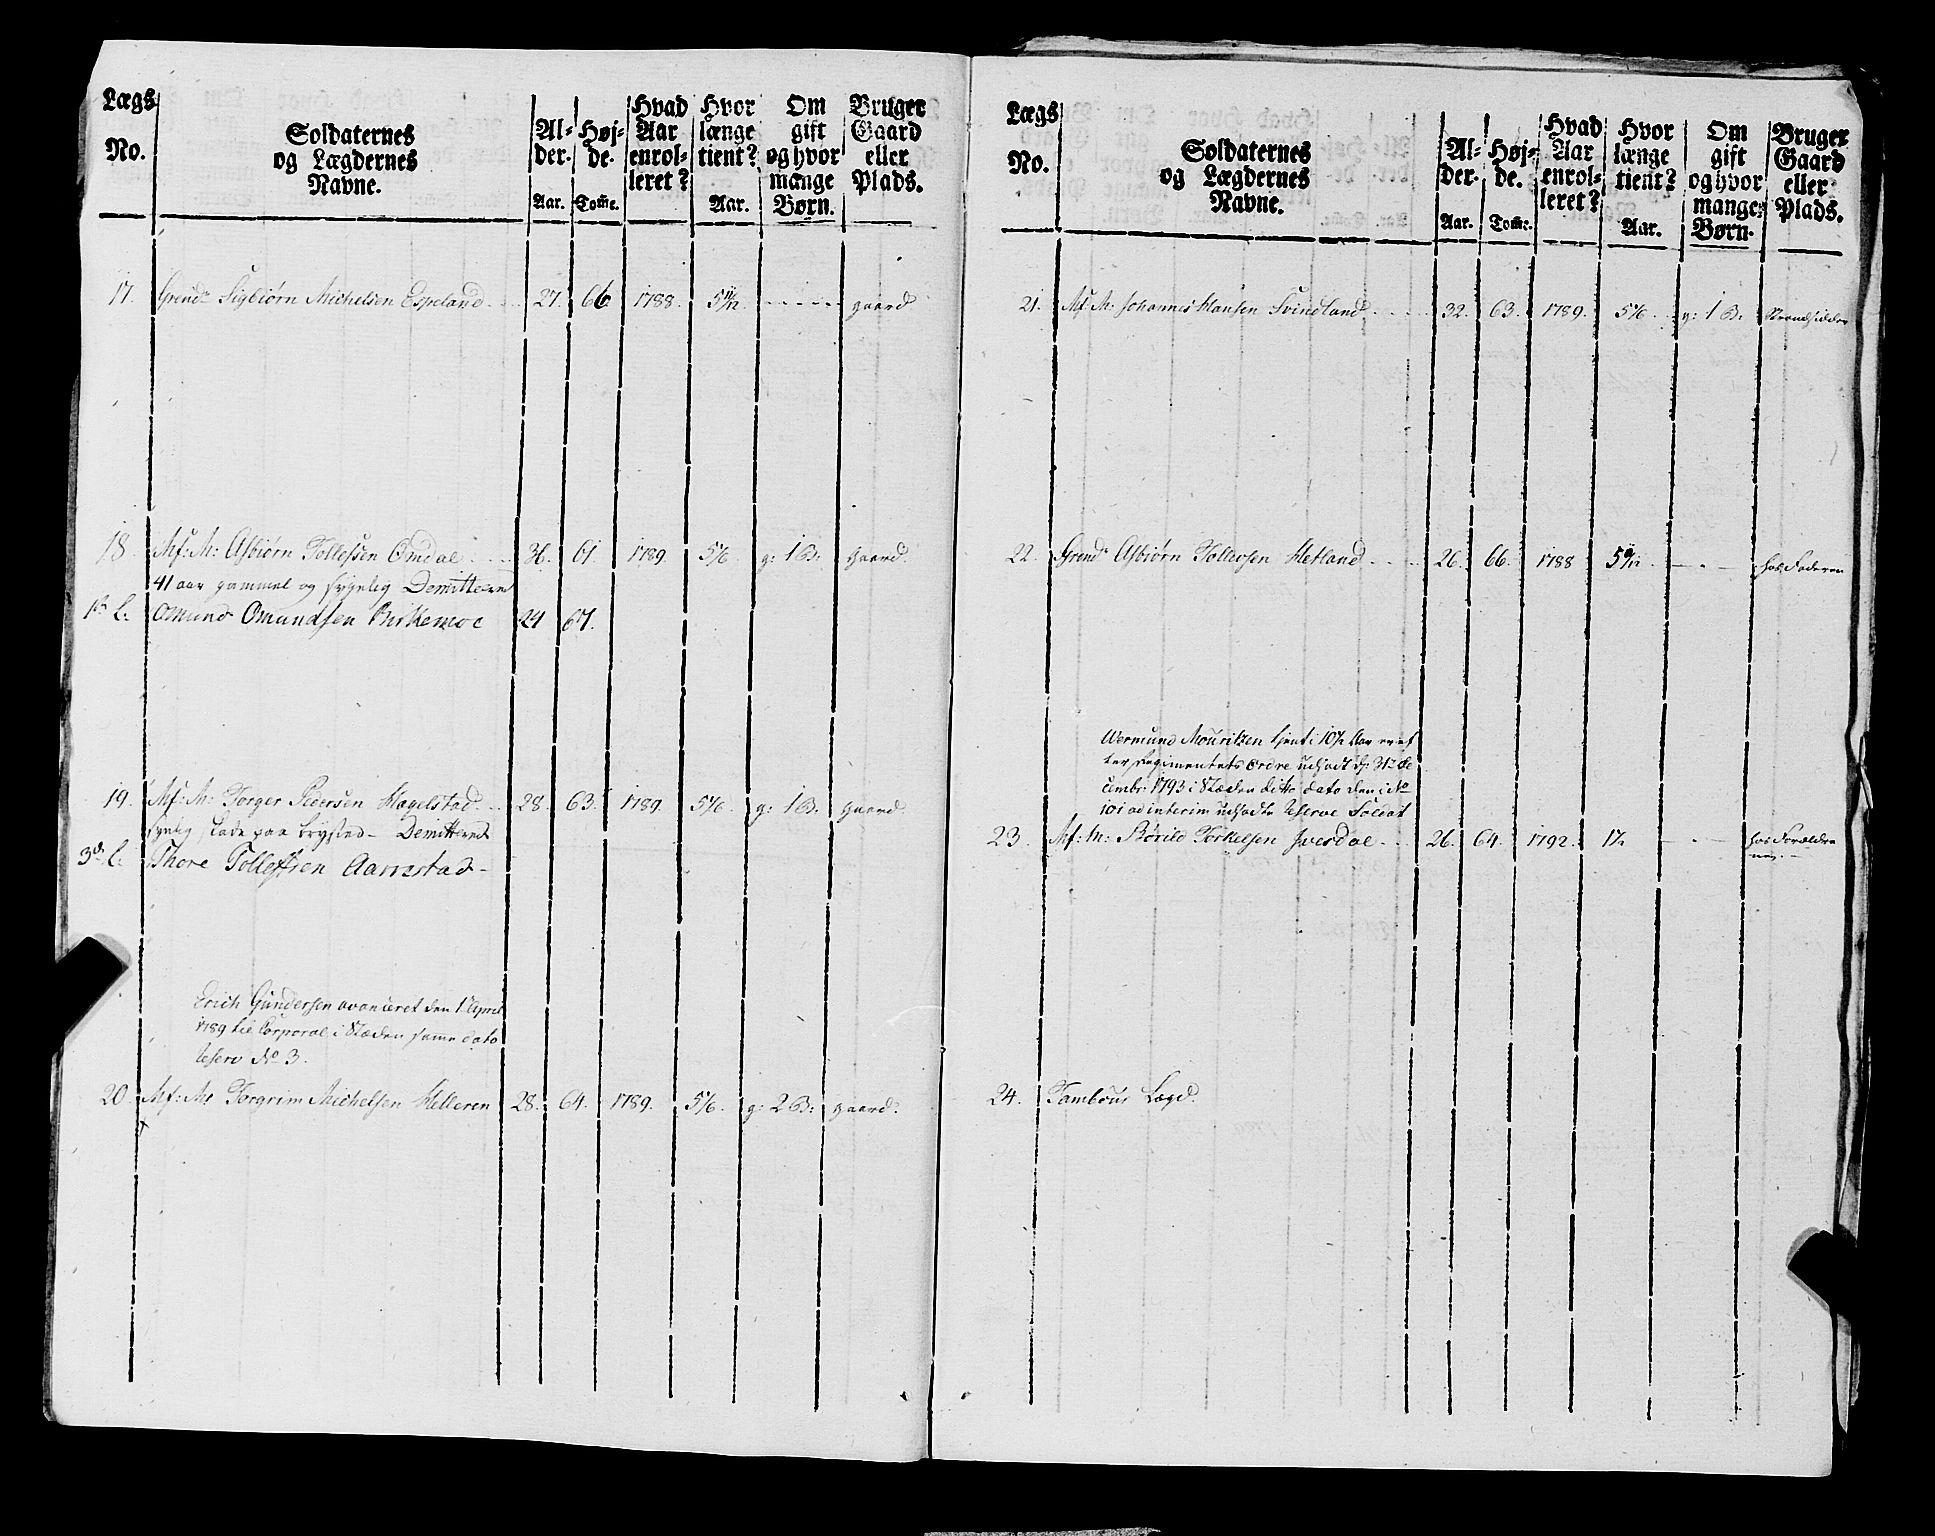 Lægs No. Soldaternes og Lægdernes Navne. Al-der. Aar. Høj-de. Tom̄e. Hvad Aar enrol-leret? Hvor længe tient? Aar. Om gift og hvor mange Børn. Bruger Gaard eller Plads.
17. Grend: Sigbiørn Michelsen Espeland 27. 66 1788. 5 11/12 gaard
18. Mf: M: Asbiørn Tollefsen Omdal 36. 61. 1789. 5 1/6 g: 1 B: gaard.
41 aar gammel og sygelig Demitteres
1st L: Omund Omundsen Birkemoe 24 67.
19. Mf: M: Torger Pedersen Hagelstad 28. 63. 1789. 5 1/6. g: 1 B: gaard.
sygelig, skade paa brysted - Demitteres
3d L: Thore Tollefsen Aarrestad -
Erich Gundersen avanceret den 1te April
1789 til Corporal i Stæden samme dato
Reserv No 3.
20. Mf: M: Torgrim Michelsen Helleren 28. 64. 1789. 5 1/6. g: 2 B: gaard.
Lægs No. Soldaternes og Lægdernes Navne. Al-der. Aar. Høj-de. Tom̄e. Hvad Aar enrol-leret? Hvor længe tient? Aar. Om gift og hvor mange Børn. Bruger Gaard eller Plads.
21. Mf: M: Johannes Hansen Svindland 32. 63. 1789. 5 1/6. g: 1 B: Strandsidder
22. Grend: Asbiørn Tollevsen Hetland 26. 66. 1788 5 9/12 - - - hos Faderen
Wermund Mouritzen tient i 10 1/2 Aar er ef
ter Regimentets ordre udsadt d: 31te De
cembr: 1793 i Stæden ditto dato den i No
101 ad interim udsadte Reserve Soldat
23. Mf: M: Børild Torkelsen Ivesdal 26. 64. 1792. 1 1/2 - - - hos Forældre
ne.
24. Tambour Lægd.